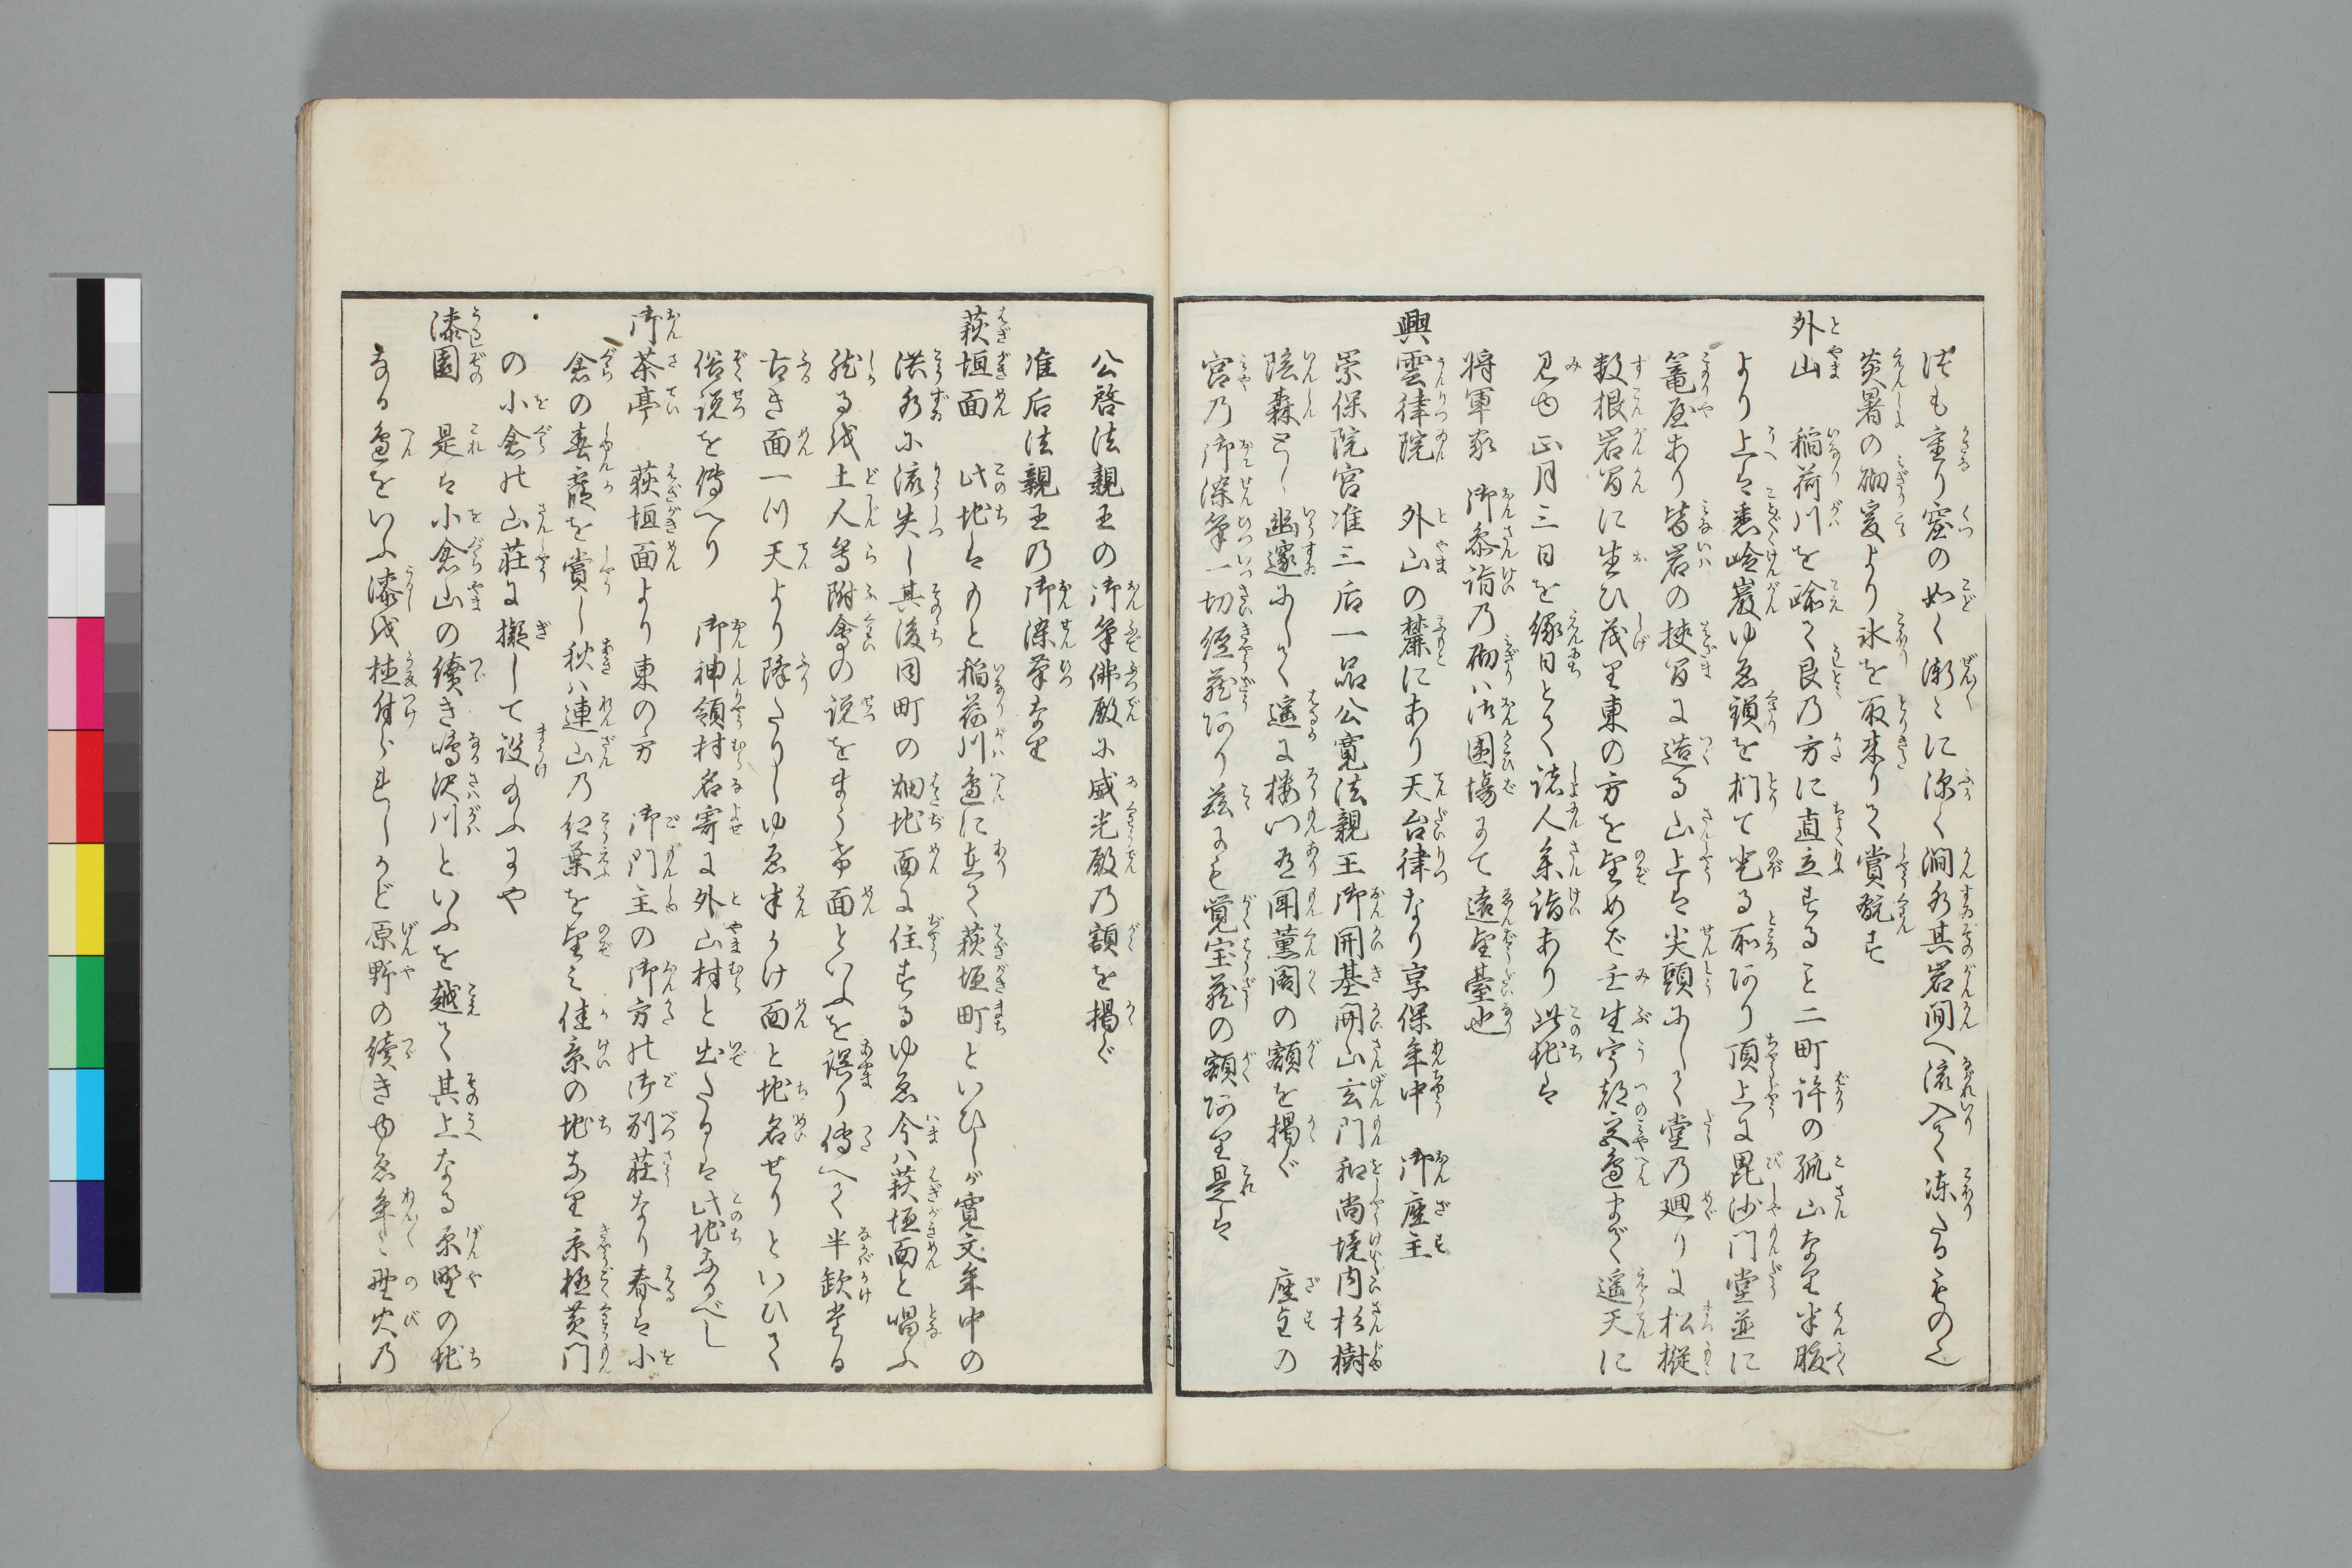 洪も重り窟の如く漸々に深く澗水其岩間へ流入て凍たるもの也
炎暑の砌爰より氷を取来りて賞翫す
外山　稲荷川を踰て艮の方に直立することニ町許の孤山なり半腹
より上は悉嶮巌ゆゑ鎖を捫て登る所あり頂上に毘沙門堂並に
篭屋あり皆岩の挾間に造る山上は尖頭にして堂の廻りに松樅
数根岩間に生ひ茂り東の方を望めば壬生宇都宮辺まで遥天に
見ゆ正月三日を縁日とて諸人参詣あり此地は
将軍家　御参詣の砌ハ御圍場にて遠望臺也
興雲律院　外山の麓にあり天台律なり享保年中　御座主
崇保院宮准三后一品公寛法親王御開基開山玄門和尚境内杉樹
陰森として幽邃にして遥に楼門有聞薫閣の額を掲ぐ　座主の
宮の御染筆一切経蔵あり茲にも覚宝蔵の額あり是は
公啓法親王の御筆佛殿に威光殿の額を掲ぐ
准后法親王の御染筆なり
萩垣面　此地はもと稲荷川辺に在て萩垣町といひしが寛文年中の
洪水に流失し其後同町の畑地面に住するゆゑ今ハ萩垣面と唱ふ
然るを土人等附會の説をまうけ面といふを誤り傳へて半欠たる
古き面一ツ天より降たりしゆゑ半かけ面と地名せりといひて
俗説を傳へり　御神領村名寄に外山村と出たるは此地なるべし
御茶亭　萩垣面より東の方　御門主の御方の御別荘なり春は小
倉の春霞を賞し秋ハ連山の紅葉を望み佳景の地なり京極黄門
の小倉の山荘に擬して設給ふにや
漆園　是は小倉山の續き鳴沢川といふを越て其上なる原野の地
なる辺をいふ漆を植付られしかど原野の續きゆゑ年々野火の